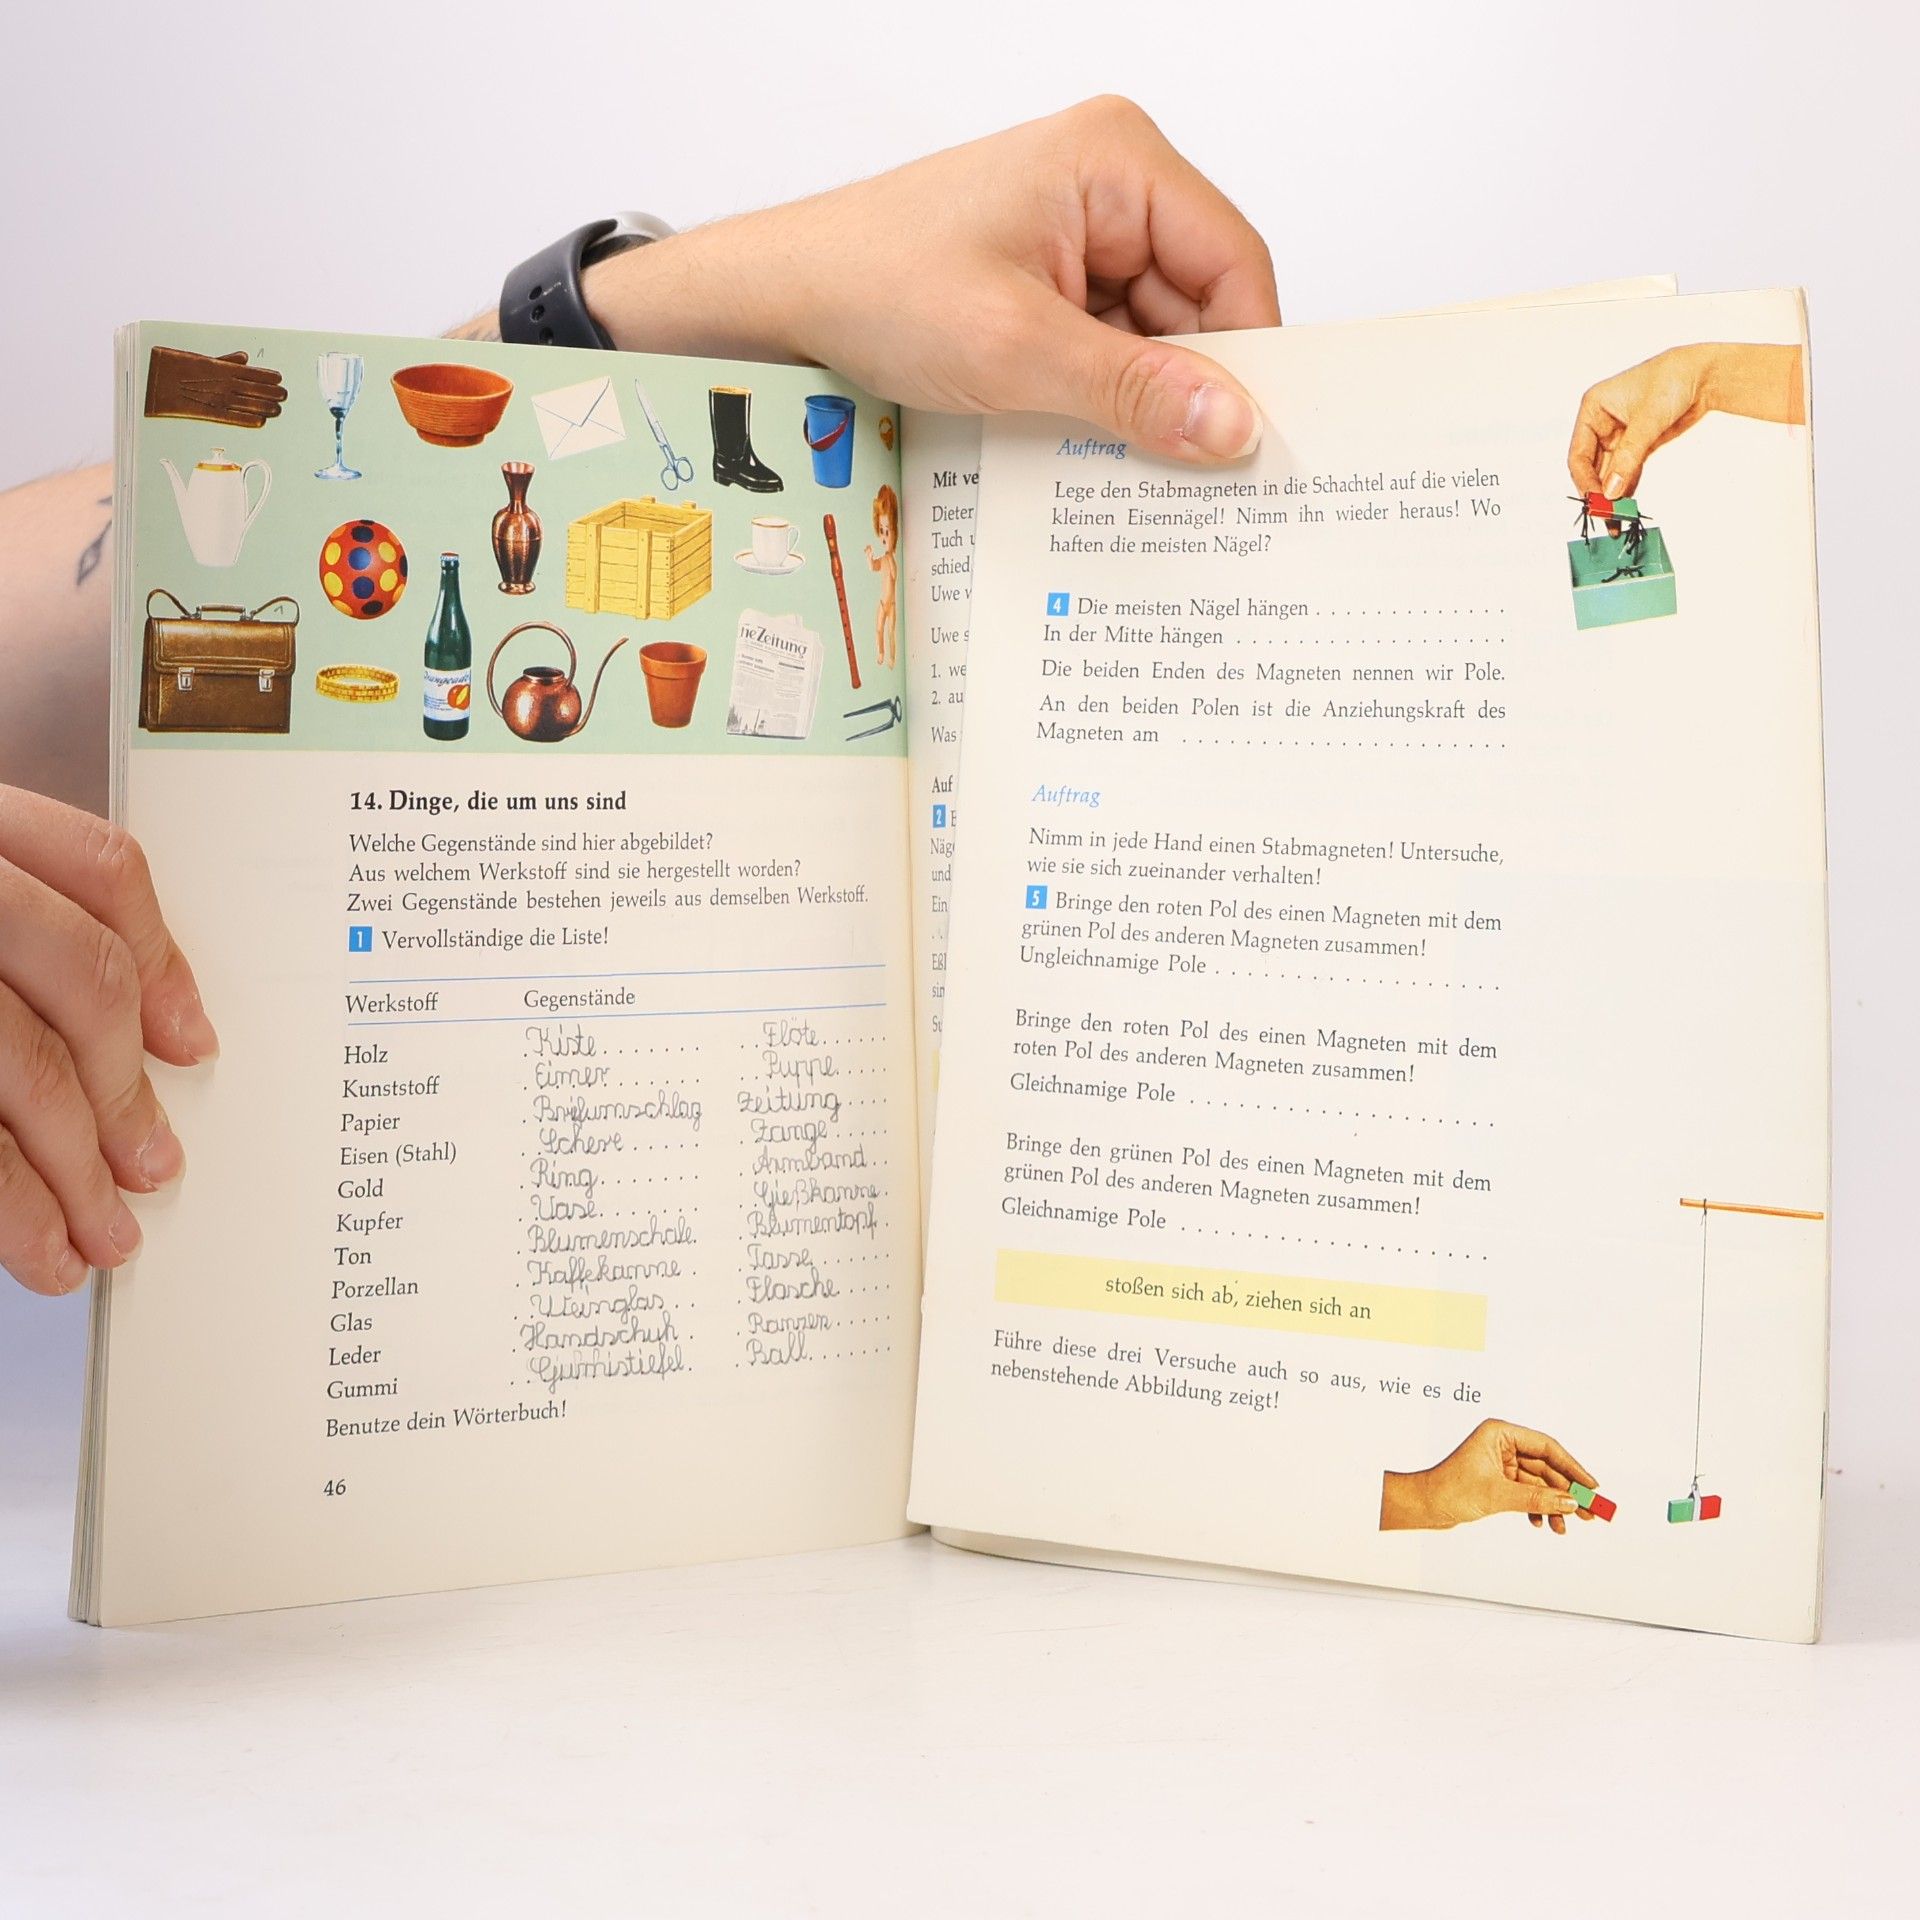 ne Zeitung
14. Dinge, die um uns sind
Welche Gegenstände sind hier abgebildet?
Aus welchem Werkstoff sind sie hergestellt worden?
Zwei Gegenstände bestehen jeweils aus demselben Werkstoff.
1 Vervollständige die Liste!
Werkstoff Gegenstände
Holz Kiste Flöte
Kunststoff Eimer Puppe
Papier Brifumschlag Zeitung
Eisen (Stahl) Schere Zange
Gold Ring Armband
Kupfer Vase Gießkanne
Ton Blumenschale Blumentopf
Porzellan Kaffekanne Tasse
Glas Weinglas Flasche
Leder Handschuh Ranzen
Gummi Gumistiefel Ball
Benutze dein Wörterbuch!
46
Mit ve
Dieter
Tuch
schied
Uwe
Uwe s
1. we
2. au
Was
Auf
2
Näg
und
Ein
Eßl
sin
Auftrag
Lege den Stabmagneten in die Schachtel auf die vielen
kleinen Eisennägel! Nimm ihn wieder heraus! Wo
haften die meisten Nägel?
4 Die meisten Nägel hängen . . . . . . . . . . . . . .
In der Mitte hängen . . . . . . . . . . . . . . . . . .
Die beiden Enden des Magneten nennen wir Pole.
An den beiden Polen ist die Anziehungskraft des
Magneten am . . . . . . . . . . . . . . . . . . . . .
Auftrag
Nimm in jede Hand einen Stabmagneten! Untersuche,
wie sie sich zueinander verhalten!
5 Bringe den roten Pol des einen Magneten mit dem
grünen Pol des anderen Magneten zusammen!
Ungleichnamige Pole . . . . . . . . . . . . . . . . . .
Bringe den roten Pol des einen Magneten mit dem
roten Pol des anderen Magneten zusammen!
Gleichnamige Pole . . . . . . . . . . . . . . . . . .
Bringe den grünen Pol des einen Magneten mit dem
grünen Pol des anderen Magneten zusammen!
Gleichnamige Pole . . . . . . . . . . . . . . . . . .
stoßen sich ab, ziehen sich an
Führe diese drei Versuche auch so aus, wie es die
nebenstehende Abbildung zeigt!